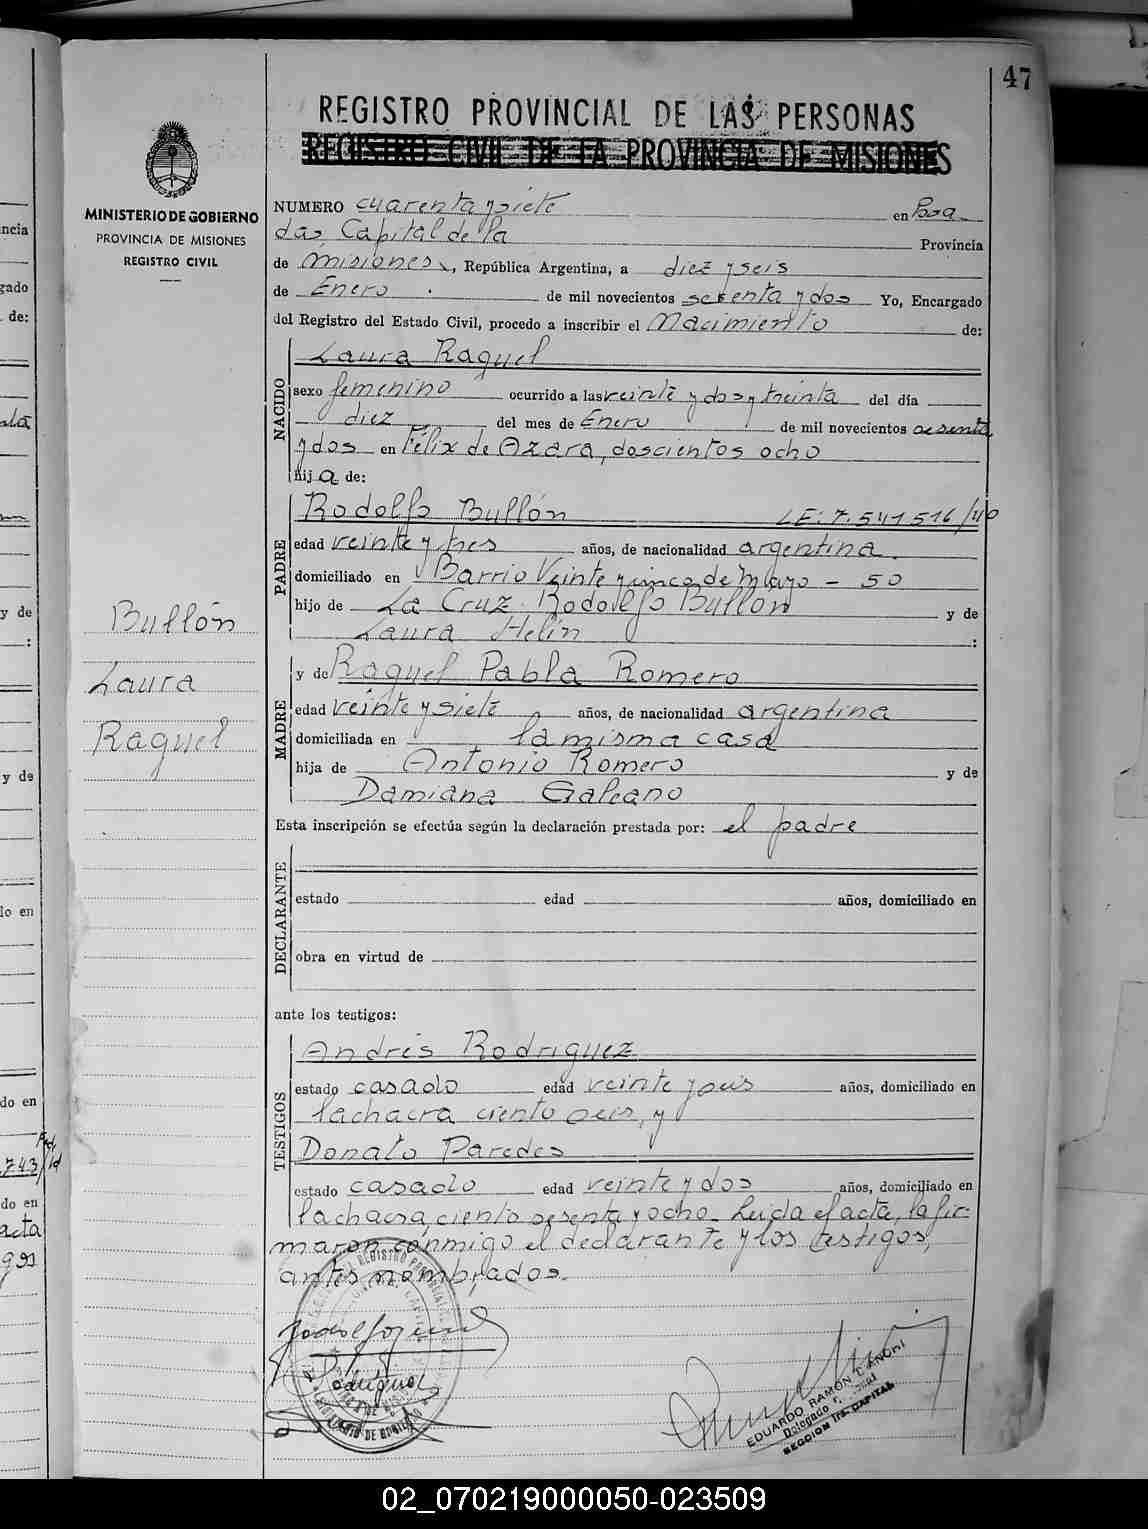 47
REGISTRO PROVINCIAL DE LAS PERSONAS
REGISTRO CIVIL DE LA PROVINCIA DE MISIONES
MINISTERIO DE GOBIERNO
PROVINCIA DE MISIONES
REGISTRO CIVIL
NUMERO cuarenta y siete en Posa
das, Capital de la Provincia
de Misiones, República Argentina, a diez y seis
de Enero de mil novecientos setenta y dos Yo, Encargado
del Registro del Estado Civil, procedo a inscribir el Nacimiento de:
NACIDO
Laura Raquel
sexo femenino ocurrido a las veinte y dos y treinta del día
diez del mes de Enero de mil novecientos setenta
y dos en Félix de Azara, doscientos ocho
hija de:
PADRE
Rodolfo Bullón LE: 7.541516/40
edad veinte y tres años, de nacionalidad argentina.
domiciliado en Barrio Veinte y cinco de Mayo - 50
hijo de La Cruz Rodolfo Bullón y de
Laura Helin :
MADRE
y de Raquel Pabla Romero
edad veinte y siete años, de nacionalidad argentina
domiciliada en la misma casa
hija de Antonio Romero y de
Damiana Galeano
Bullón
Laura
Raquel
Esta inscripción se efectúa según la declaración prestada por: el padre
DECLARANTE
estado edad años, domiciliado en
obra en virtud de
ante los testigos:
TESTIGOS
Andrés Rodriguez
estado casado edad veinte y seis años, domiciliado en
la chacra ciento seis, y
Donato Paredes
estado casado edad veinte y dos años, domiciliado en
la chacra ciento sesenta y ocho. Leida el acta, la fir-
maron conmigo el declarante y los testigos,
antes nombrados.
EDUARDO RAMON
Delegado
SECCION 1ra. CAPITAL
02_070219000050-023509